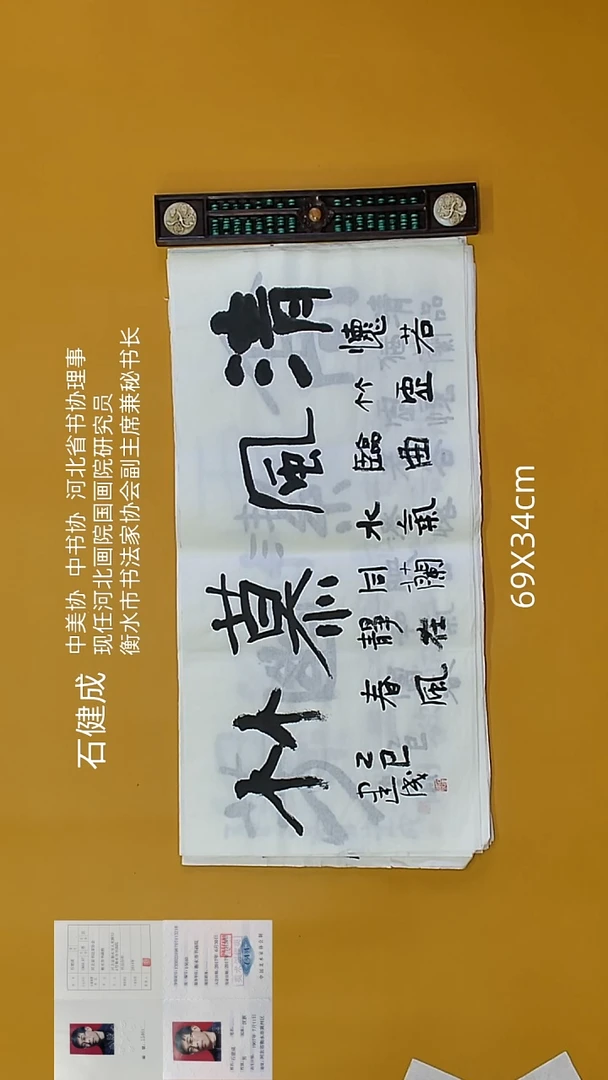 石健成
中美协 中书协 河北省书协理事
现任河北画院国画院研究员
衡水市书法家协会副主席兼秘书长
清風慕竹
懷若
竹虛
臨曲
水氣
同蘭
靜在
春風
乙巳
69X34cm